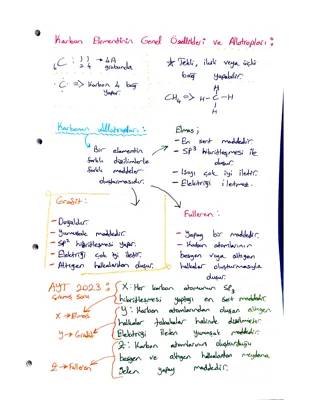 Karbon Elementinin Genel Özellikleri ve Allotropları:
C: )) → 4A
2 4 grubunda
C => Karbon 4 bağ
yapar.
★ Tekli, ikili veya üçlü
bağ yapabilir.
H
CH4 => H-C-H
H
Karbonun Allotropları:
Bir elementin
farklı dizilimlerle
farklı maddeler
oluşturmasıdır.
Elmas;
- En sert maddedir.
- SP3 hibritleşmesi ile
oluşur.
- Isıyı çok iyi iletir.
- Elektriği iletmez.
Grafit:
- Doğaldır.
- Yumuşak maddedir.
- SP2 hibritleşmesi yapar.
- Elektriği çok iyi iletir.
- Altıgen halkalardan oluşur.
Fulleren:
- Yapay bir maddedir.
- Karbon atomlarının
beşgen veya altıgen
halkalar oluşturmasıyla
oluşur.
AYT 2023:
Çıkmış Soru
X → Elmas
Y → Grafit
Z → Fulleren
X: Her karbon atomunun SP3
hibritleşmesi yaptığı en sert maddedir.
Y: Karbon atomlarından oluşan altıgen
halkalar tabakalar halinde dizilmiştir.
Elektriği ileten yumuşak maddedir.
Z: Karbon atomlarının oluşturduğu
beşgen ve altıgen halkalardan meydana
gelen yapay maddedir.